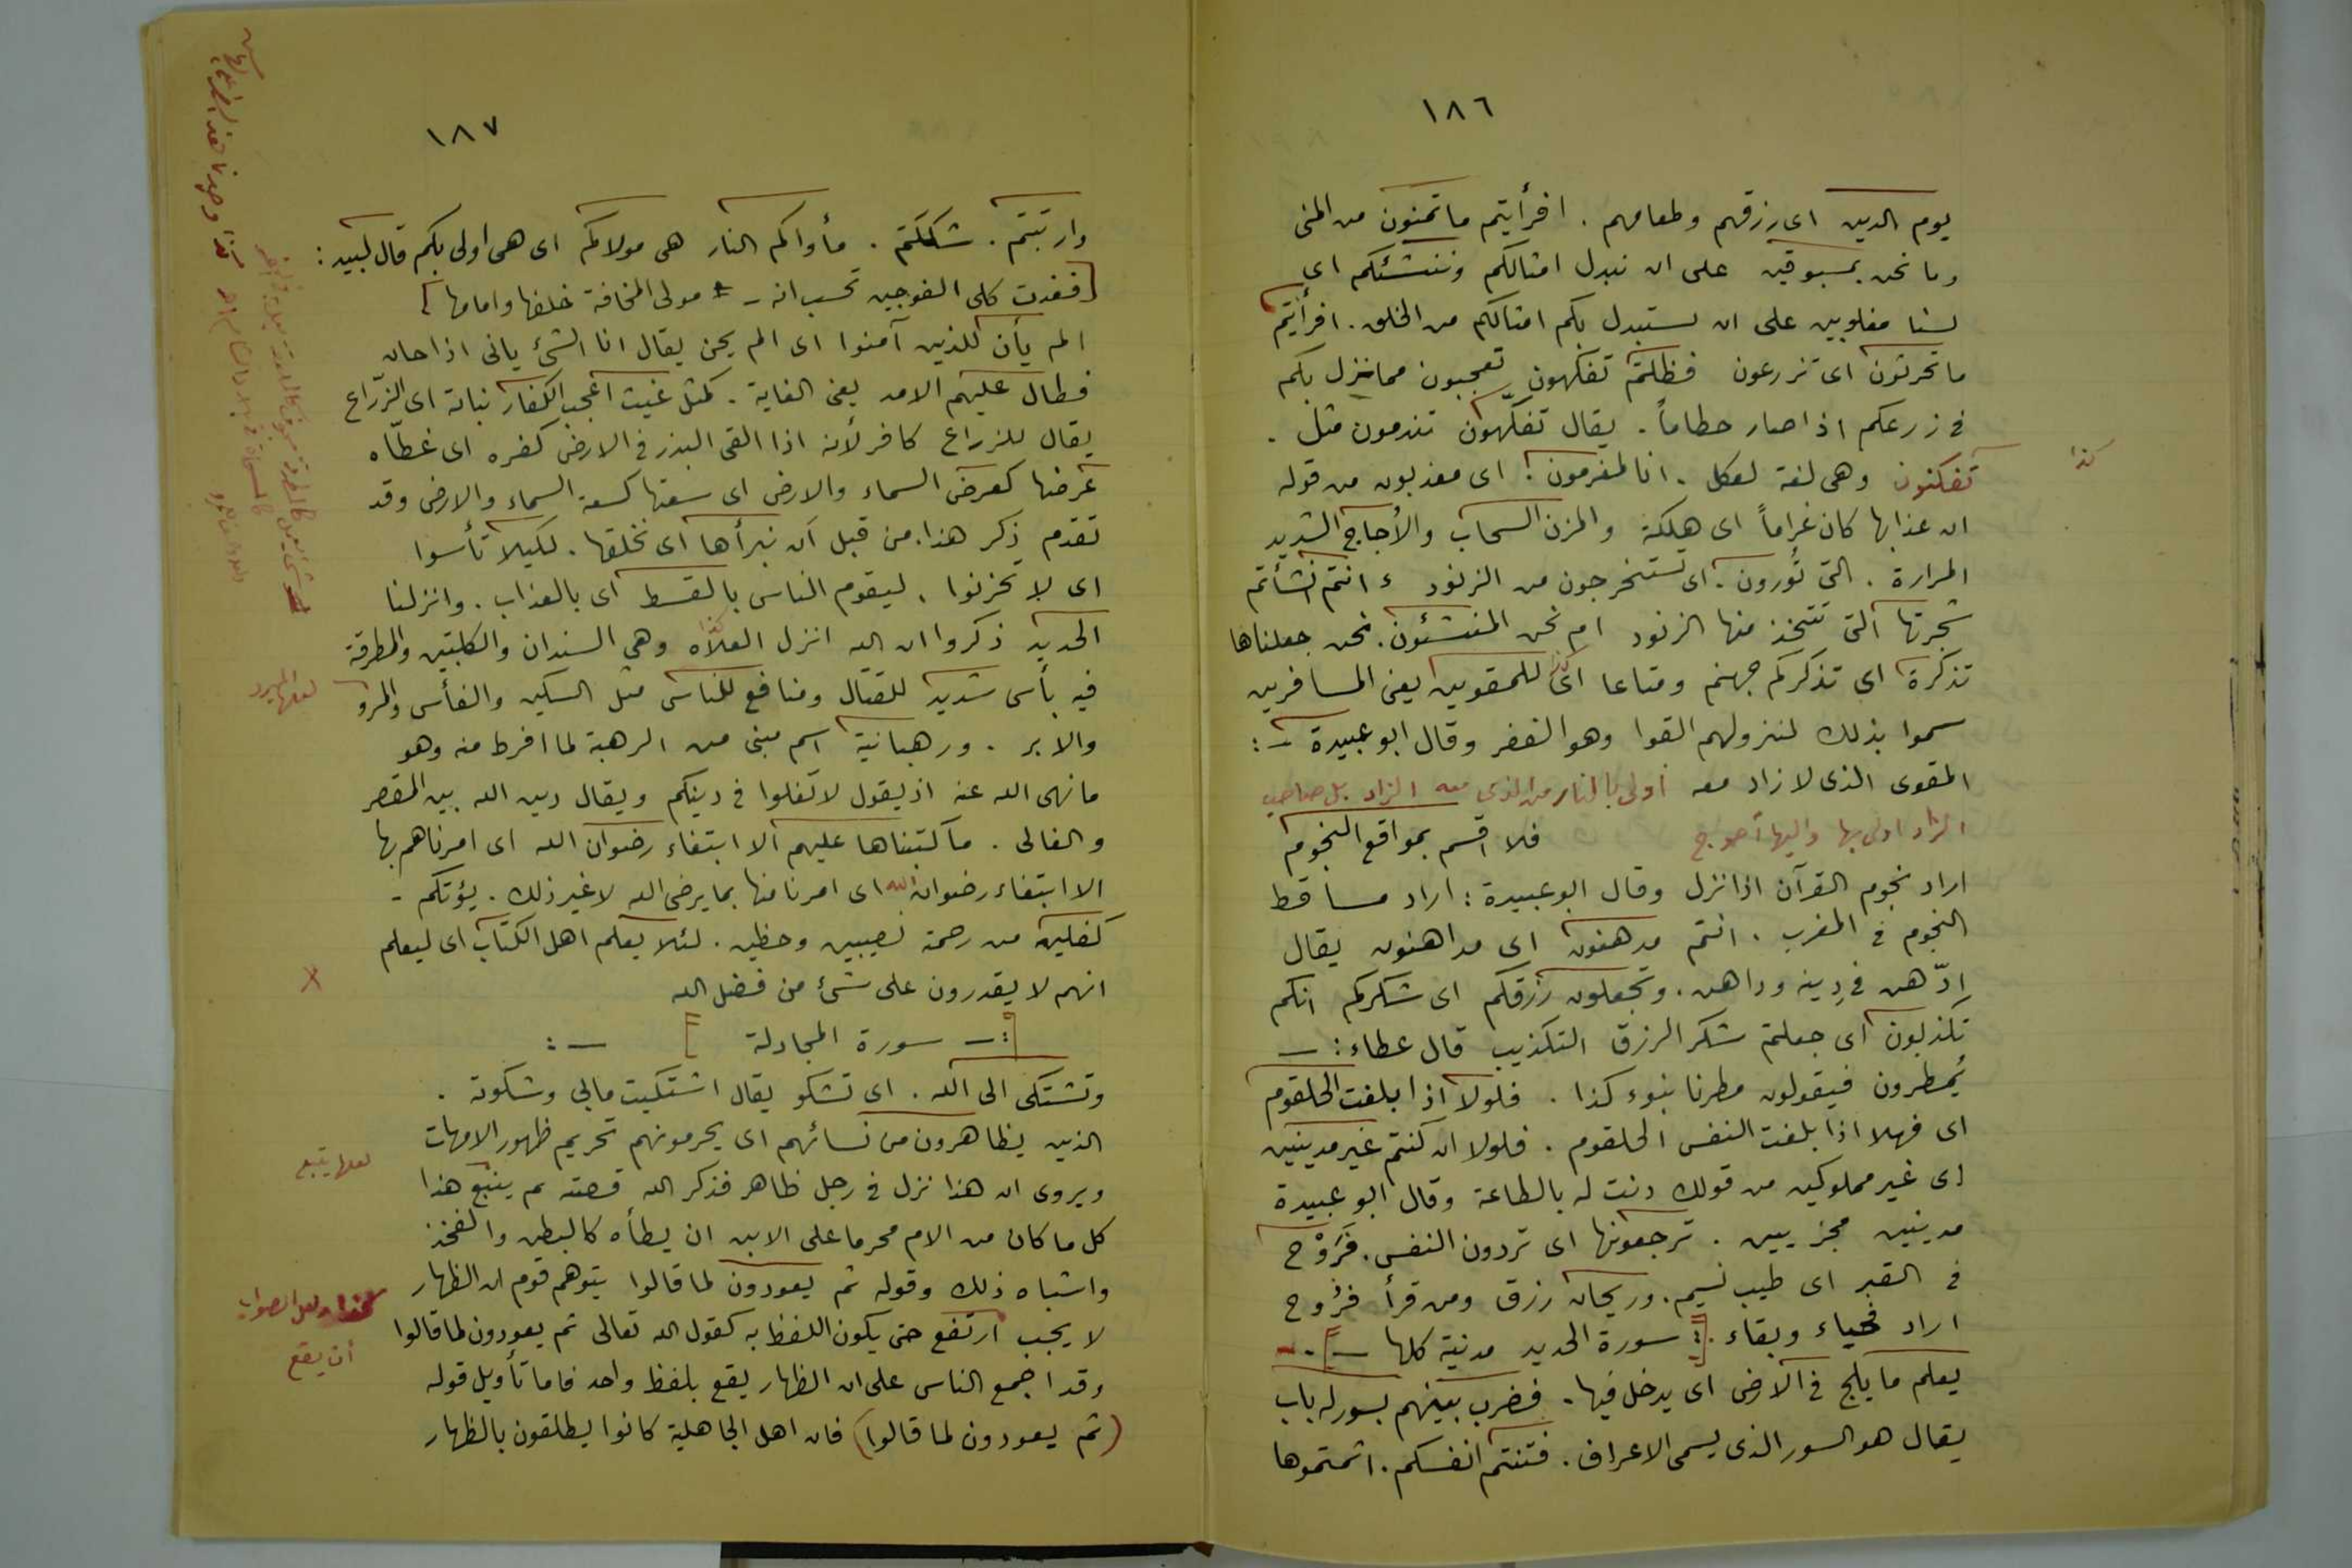 ١٨٦
يوم الدين اى رزقهم وطعامهم . افرأيتم ما تمنون من المنى
وما نحن بمسبوقين على ان نبدل امثالكم وننشئكم اى
لسنا مغلوبين على ان نستبدل بكم امثالكم من الخلق . افرأيتم
ما تحرثون اى تزرعون فظلتم تفكهون تعجبون مما نزل بكم
فى زرعكم اذا صار حطاماً . يقال تفكهون تندمون مثل .
تفكنون وهى لغة لعكل . انا لمغرمون : اى معذبون من قوله
كذا
ان عذابها كان غراماً اى هلكة والمزن السحاب والأجاج الشديد
المرارة . التى تُورون . اى تستخرجون من الزنود ء انتم انشأتم
شجرتها التى تتخذ منها الزنود ام نحن المنشئون . نحن جعلناها
تذكرة اى تذكركم جهنم ومتاعا للمقوين يعنى المسافرين
سموا بذلك لنزولهم القوا وهو القفر وقال ابو عبيدة :-
المقوى الذى لا زاد معه أولى بالنار من الذى معه الزاد بل صاحب
الزاد اولى بها واليها أحوج فلا اقسم بمواقع النجوم
اراد نجوم القرآن اذا نزل وقال ابو عبيدة : اراد مساقط
النجوم فى المغرب . انتم مدهنون اى مداهنون يقال
ادّهن فى دينه وداهن . وتجعلون رزقكم اى شكركم انكم
تكذبون اى جعلتم شكر الرزق التكذيب قال عطاء :-
يُمطرون فيقولون مطرنا بنوء كذا . فلولا اذا بلغت الحلقوم
اى فهلا اذا بلغت النفس الحلقوم . فلولا ان كنتم غير مدينين
اى غير مملوكين من قولك دنت له بالطاعة وقال ابو عبيدة
مدينين مجزيين . ترجعونها اى تردون النفس . فَرَوْح
فى القبر اى طيب نسيم . وريحان رزق ومن قرأ فرُوح
اراد فحياء وبقاء . [: سورة الحديد مدنية كلها -] .-
يعلم ما يلج فى الارض اى يدخل فيها . فضرب بينهم بسور له باب
يقال هو السور الذى يسمى الاعراف . فتنتم انفسكم . اثمتموها
١٨٧
وارتبتم . شككتم . مأواكم النار هى مولاكم اى هى اولى بكم قال لبيد :
[فغدت كلى الفرجين تحسب انه - * مولى المخافة خلفها وامامها]
الم يأن للذين آمنوا اى الم يحن يقال انا الشئ يانى اذا حان
فطال عليهم الامد يعنى الغاية . كمثل غيث اعجب الكفار نباته اى الزرّاع
يقال للزراع كافر لأنه اذا القى البذر فى الارض كفره اى غطّاه
عرضها كعرض السماء والارض اى سعتها كسعة السماء والارض وقد
تقدم ذكر هذا . من قبل ان نبرأها اى نخلقها . لكيلا تأسوا
اى لا تحزنوا . ليقوم الناس بالقسط اى بالعذاب . وانزلنا
الحديد ذكروا ان الله انزل العلاه وهى السندان والكلبتين والمطرقة
فيه بأس شديد للقتال ومنافع للناس مثل السكين والفأس والمرو
لعلها المبرد
والابر . ورهبانية اسم مبنى من الرهبة لما افرط منه وهو
ما نهى الله عنه اذ يقول لا تغلوا فى دينكم ويقال دين الله بين المقصر
والغالى . ما كتبناها عليهم الا ابتغاء رضوان الله اى امرناهم بها
الا ابتغاء رضوان الله اى امرنا منها بما يرضى الله لا غير ذلك . يؤتكم -
كفلين من رحمته نصيبين وحظين . لئلا يعلم اهل الكتاب اى ليعلم
انهم لا يقدرون على شئ من فضل الله
[:- سورة المجادلة ] -:
وتشتكى الى الله . اى تشكو يقال اشتكيت ما بى وشكوته .
الذين يظاهرون من نسائهم اى يحرمونهم تحريم ظهور الامهات
ويروى ان هذا نزل فى رجل ظاهر فذكر الله قصته ثم يتبع هذا
لعلها يتبع
كل ما كان من الام محرما على الابن ان يطأه كالبطن والفخذ
واشباه ذلك وقوله ثم يعودون لما قالوا يتوهم قوم ان الظهار
لا يجب ارتفع حتى يكون اللفظ به كقول الله تعالى ثم يعودون لما قالوا
كذا ولعل الصواب
أن يقع
وقد اجمع الناس على ان الظهار يقع بلفظ واحد فاما تأويل قوله
(ثم يعودون لما قالوا) فان اهل الجاهلية كانوا يطلقون بالظهار